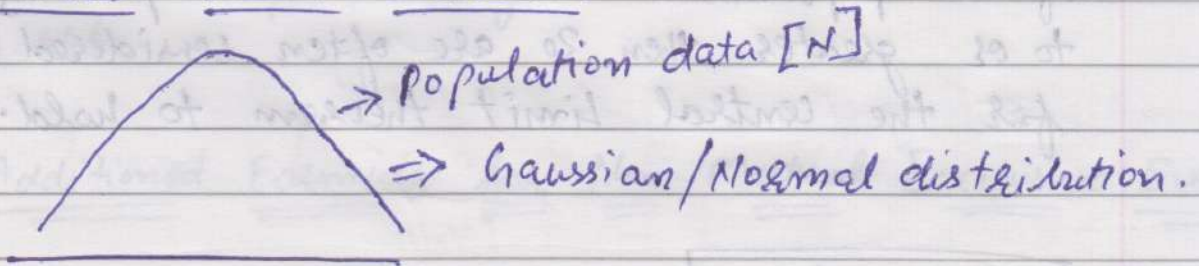 → Population data [N]
⇒ Gaussian/Normal distribution.